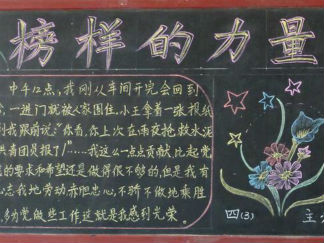 榜样的力量
中午12点，我刚从车间开完会回到
，一进门就被人家围住，小王拿着一张报纸
到我跟前说："你看，你上次立雨夜抢救水泥
共青团员报了！"……我这么一点点贡献比起党
的要求和希望还是做得很不够的，但是我有
志我地劳动赤胆忠心，不骄不做地乘胜
为党做些工作这就是我感到光荣。
四(3)
主